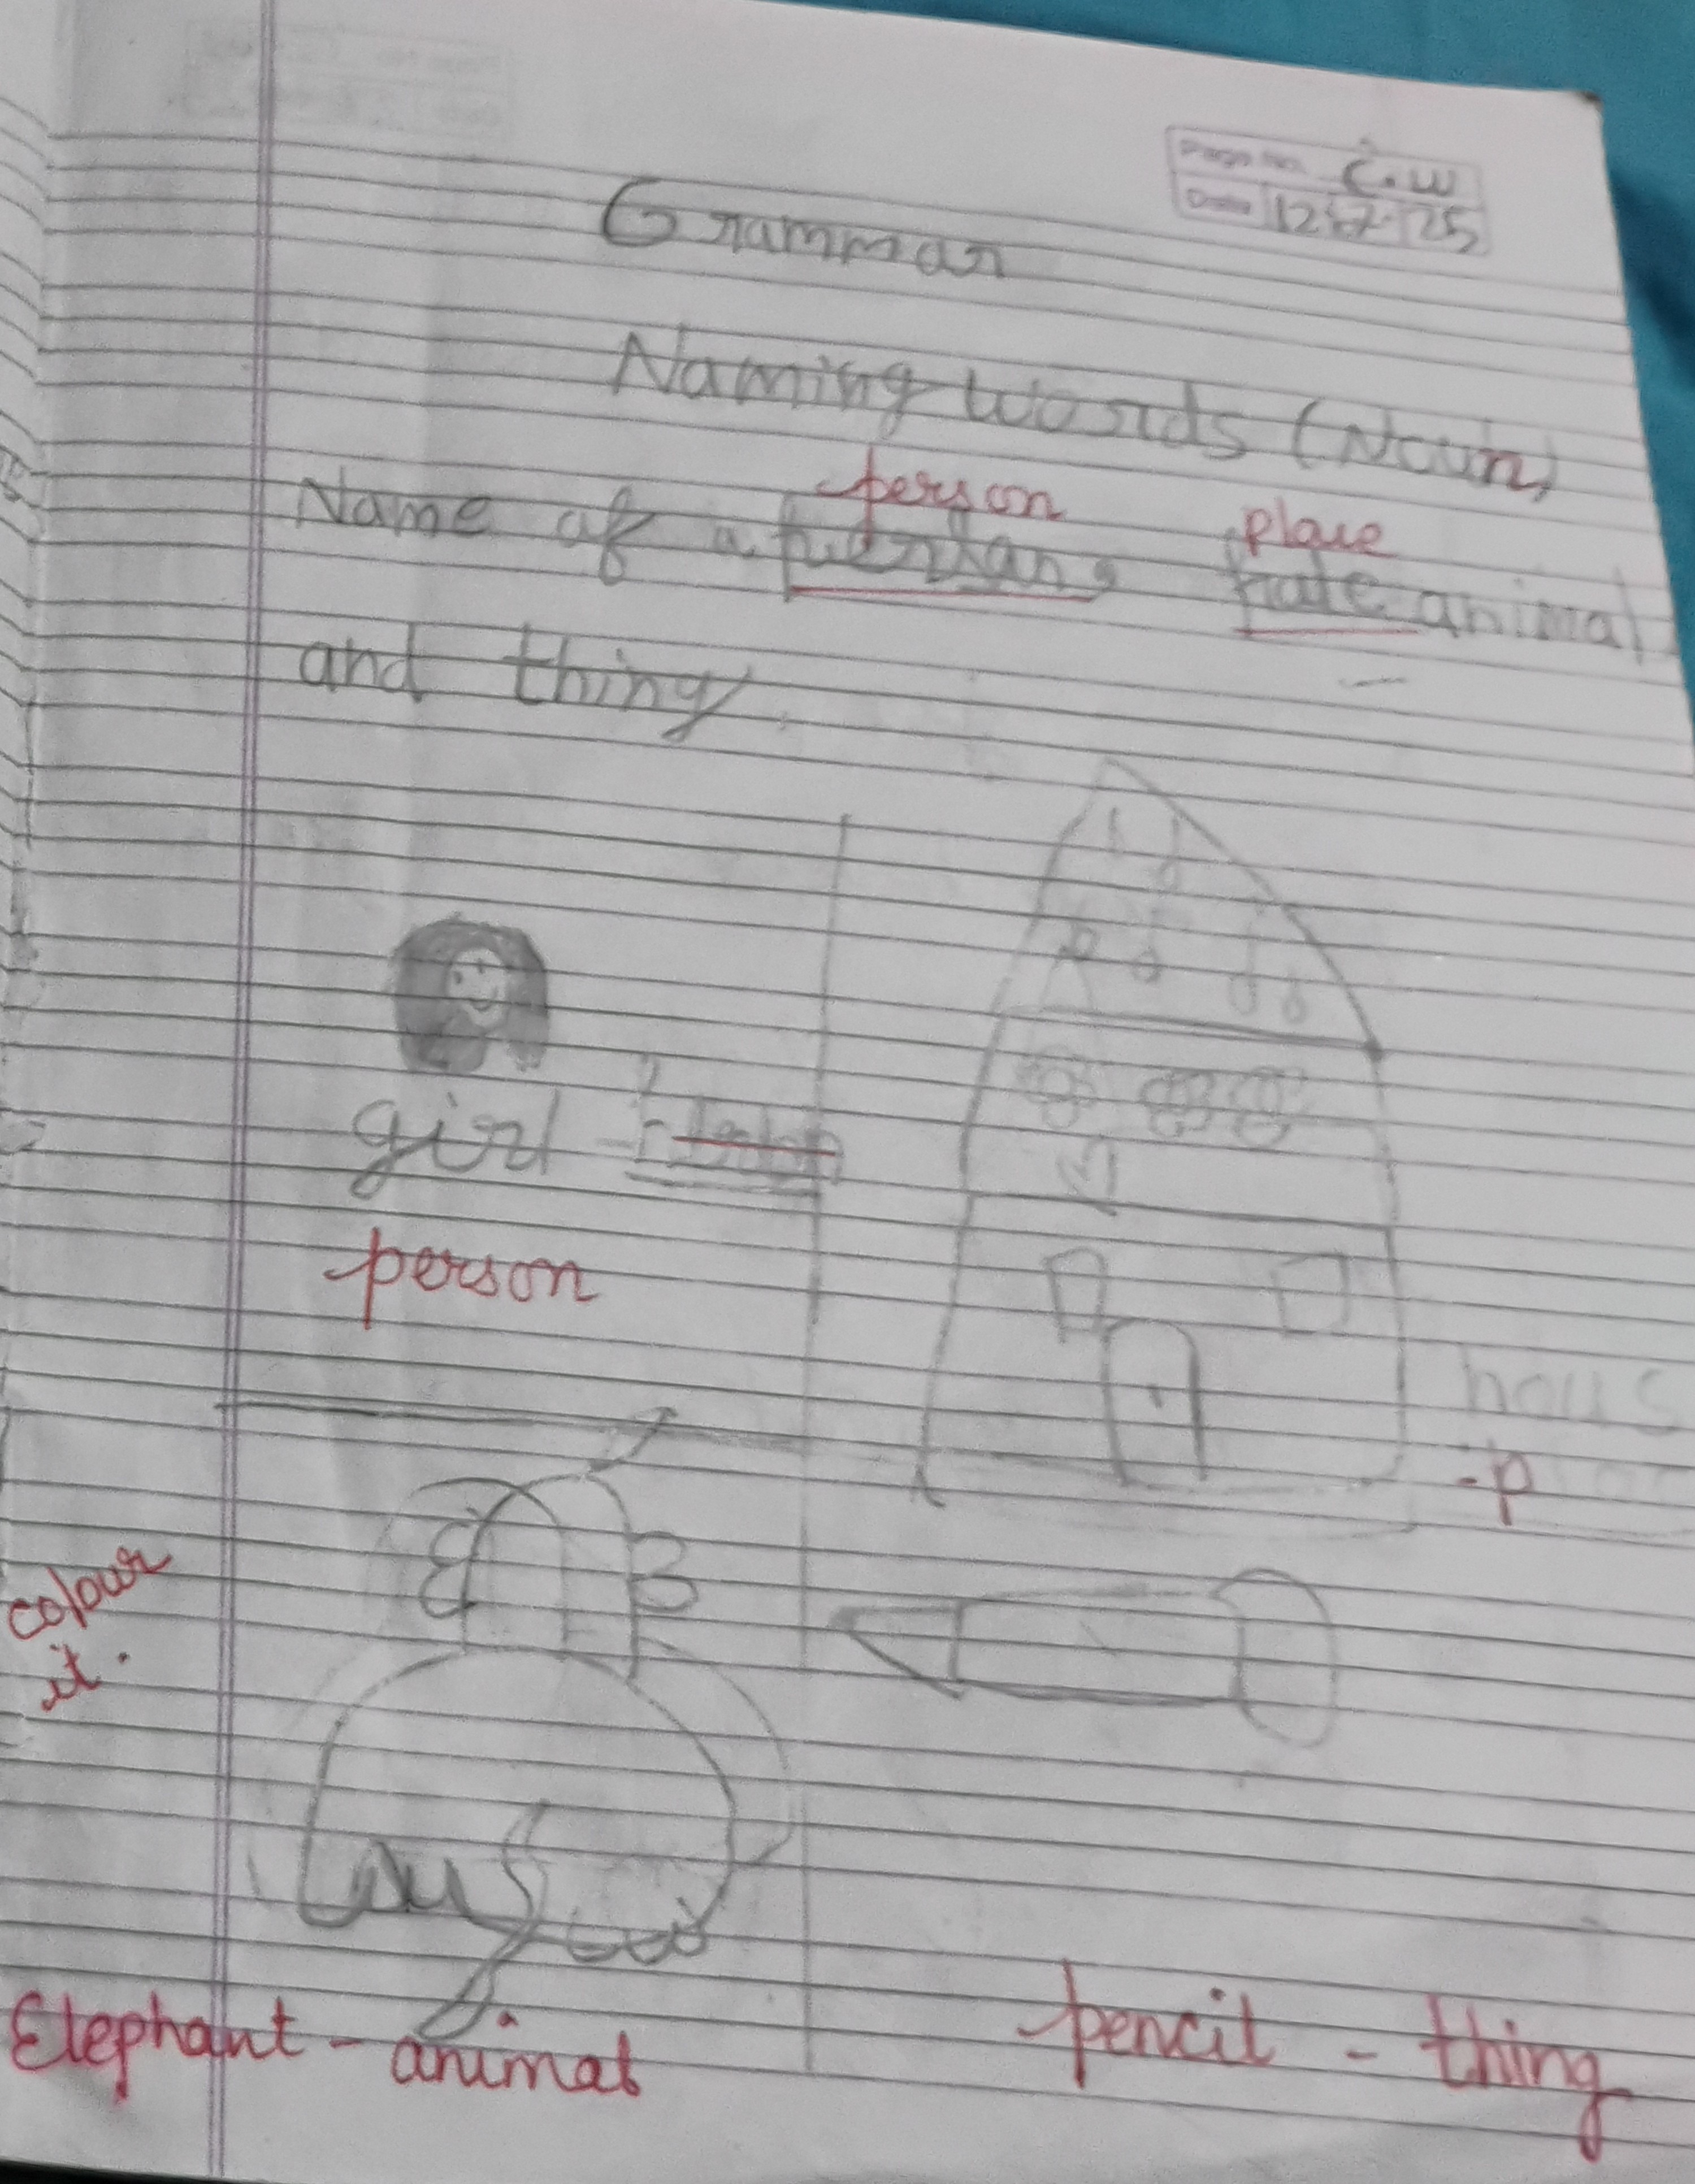 Page No. C.W
Date 12-7-25
Grammar
Naming Words (Noun)
person place
Name of a animal
and thing
girl -
person
hous
-p
colour
it.
Elephant - animal
pencil - thing